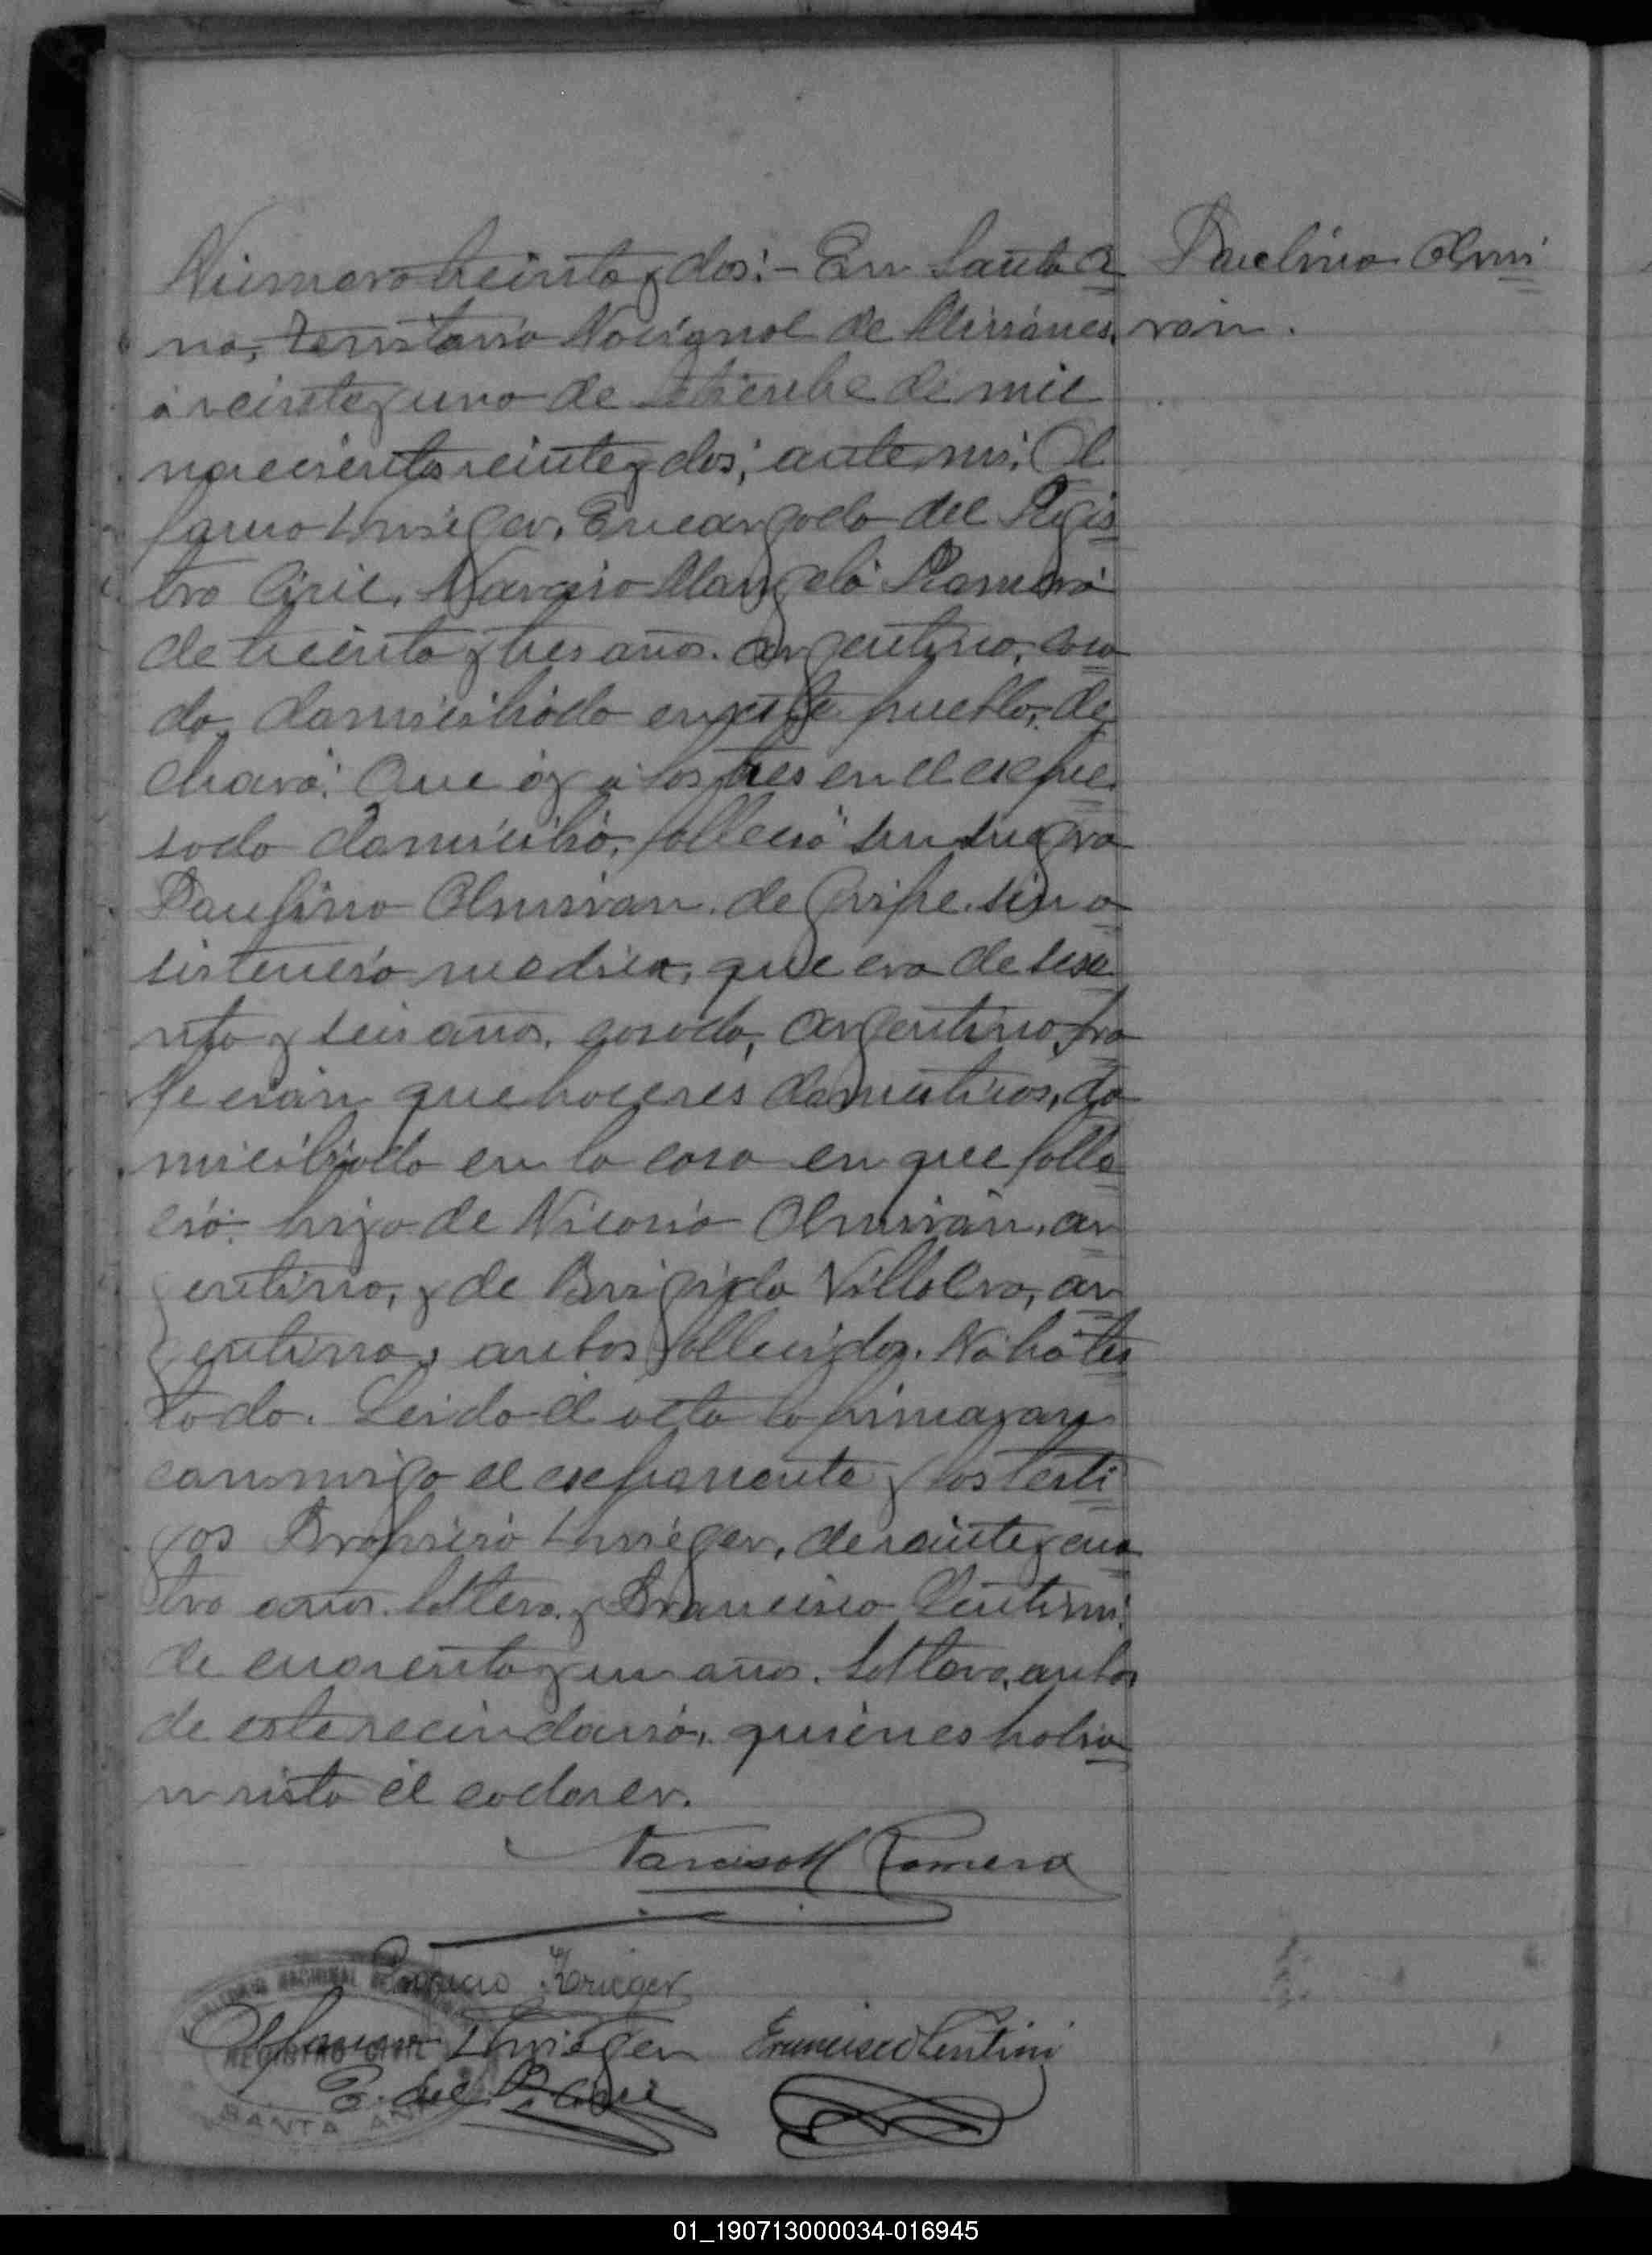 Numero treinta y dos:- En Santa A
na, Territorio Nacional de Misiones,
á veinte y uno de Setiembre de mil
novecientos veinte y dos; ante mi; Ol
Krieger, Encargado del Regis
tro Civil, Narciso Marcelo Romero
de treinta y tres años, argentino, casa
do, domiciliado en este pueblo, de
claró: Que óy á las tres en el expre
sado domicilio, falleció su suegra
Paulina Olmiran, de Gripe, sin a
sistencia medica, que era de sese
nta y seis años, casada, argentina, pro
fecion quehaceres domesticos, do
miciliada en la casa en que falle
ció: hija de Nicasio Olmiran, ar
gentino, y de Brigida Villalva, ar
gentina, ambos fallecidos. No ha tes
tado. Leida el acta la firmaron
conmigo el exponente y los testi
gos Krieger, de veinte y cua
tro años, soltero, y Francisco Centini
de cuarenta y un años, soltero, ambos
de este vecindario, quienes habia
n visto el cadaver.
Paulina Olmi
ran.
Narciso M Romero
Krieger
Krieger Francisco Centini
E. del R. Civil
REGISTRO CIVIL
SANTA ANA
01_190713000034-016945